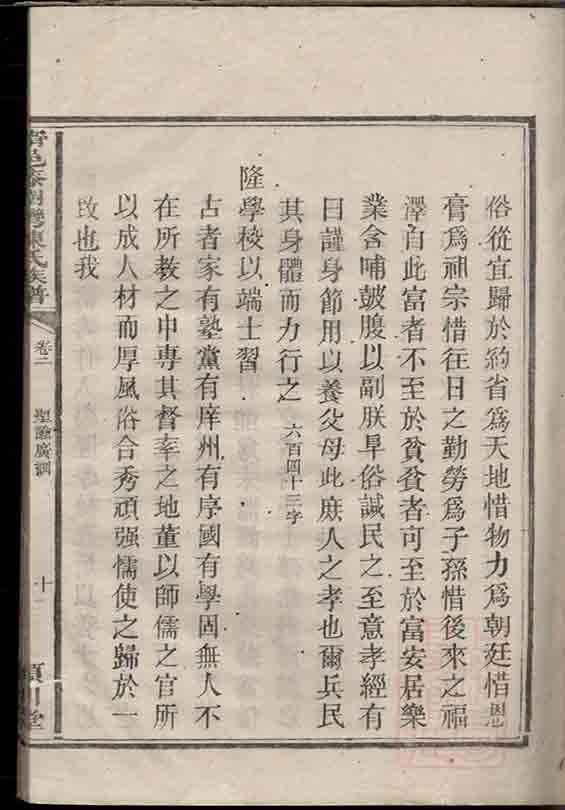 俗從宜歸於約省爲天地惜物力爲朝廷惜恩
膏爲祖宗惜往日之勤勞爲子孫惜後來之福
澤自此富者不至於貧貧者可至於富安居樂
業含哺鼓腹以副朕阜俗誠民之至意孝經有
曰謹身節用以養父母此庶人之孝也爾兵民
其身體而力行之 六百四十三字
隆學校以端士習
古者家有塾黨有庠州有序國有學固無人不
在所教之中專其督率之地董以師儒之官所
以成人材而厚風俗合秀頑强懦使之歸於一
致也我
陳氏族譜
卷二
聖諭廣訓
十一
川堂